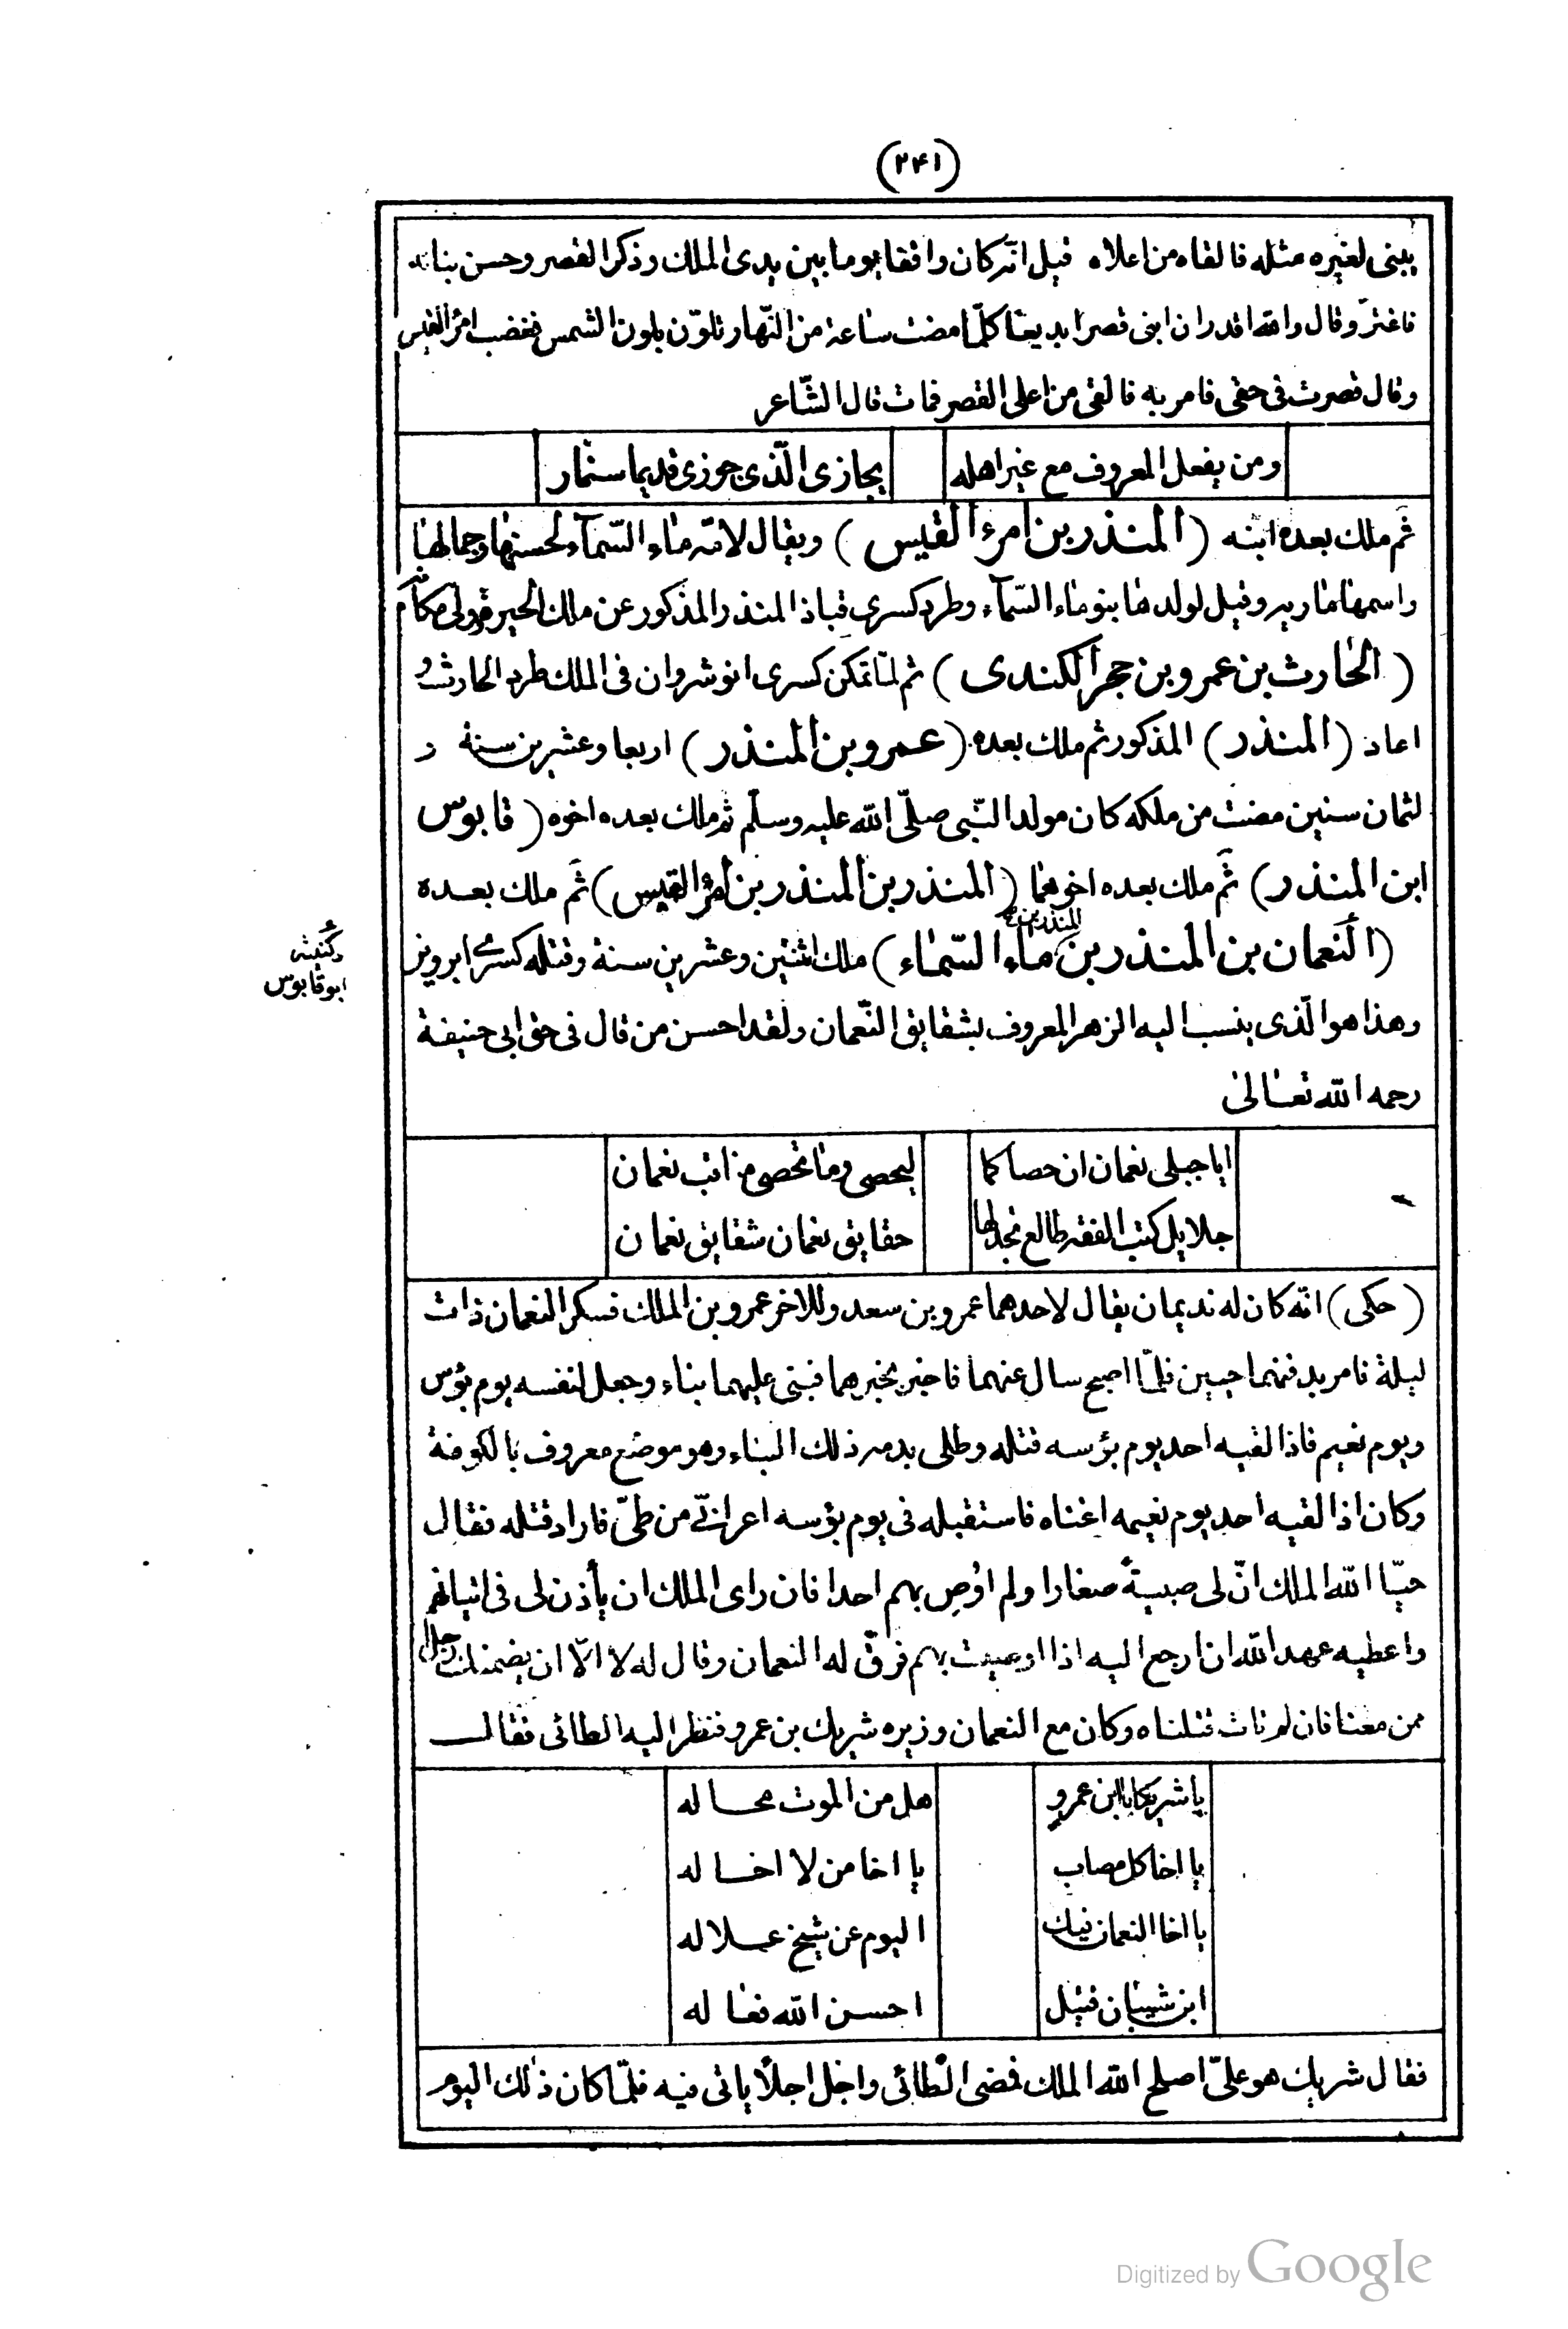 (٢٤١)
يبنى لغيره مثله فالقاه من اعلاه قيل انّه كان واقفا يوما بين يدى الملك وذكر القصر وحسن بنائه
فاغترّ وقال والله اقدر ان ابنى قصرا بديعا كلّما مضت ساعة من النّهار تلوّن بلون الشمس فغضب امرؤ القيس
وقال قصرت فى حقى فامر به فالقى من اعلى القصر فمات قال الشّاعر
ومن يفعل المعروف مع غير اهله يجازى الّذى جوزى قديما سنمّار
ثم ملك بعده ابنه (المنذر بن امرء القيس) ويقال لامّه ماء السّمآء لحسنها وجمالها
واسمها ماريه وقيل لولدها بنو ماء السّمآء وطرد كسرى قباذ المنذر المذكور عن ملك الحيرة وولى مكانه
(الحارث بن عمرو بن حجر الكندى) ثم لمّا تمكن كسرى انوشروان فى الملك طرد الحارث و
اعاد (المنذر) المذكور ثم ملك بعده (عمرو بن المنذر) اربعا وعشرين سنة و
لثمان سنين مضت من ملكه كان مولد النّبى صلّى الله عليه وسلّم ثم ملك بعده اخوه (قابوس
ابن المنذر) ثم ملك بعده اخوهما (المنذر بن المنذر بن امرؤ القيس) ثم ملك بعده
(النعمان بن المنذر بن المنذر بن ماء السّماء) ملك اثنين وعشرين سنة وقتله كسرى ابرويز
وكنيته
ابو قابوس
وهذا هو الّذى ينسب اليه الزهر المعروف بشقايق النّعمان ولقد احسن من قال فى حق ابى حنيفة
رحمه الله تعالىٰ
ايا جبلى نعمان ان حصاكما ليحصى وما تحصى مناقب نعمان
جلايل كتب الفقه طالع تجد لها حقايق نعمان شقايق نعمان
(حكى) انّه كان له نديمان يقال لاحدهما عمرو بن سعد وللاخر عمرو بن الملك فسكر النعمان ذات
ليلة فامر بدفنهما حيين فلمّا اصبح سال عنهما فاخبر بخبرهما فبنى عليهما بناء وجعل لنفسه يوم بؤس
ويوم نعيم فاذا لقيه احد يوم بؤسه قتله وطلى بدمه ذلك البناء وهو موضع معروف بالكوفة
وكان اذا لقيه احد يوم نعيمه اغناه فاستقبله فى يوم بؤسه اعرابىّ من طىّ فاراد قتله فقال
حيّا الله الملك انّ لى صبيةً صغارا ولم اوُصِ بهم احدا فان راى الملك ان يأذن لى فى اتيانهم
واعطيه عهد الله ان ارجع اليه اذا اوصيت بهم فرقّ له النعمان وقال له لا الّا ان يضمنك رجل
ممن معنا فان لم تات قتلناه وكان مع النعمان وزيره شريك بن عمرو فنظر اليه الطائى فقال
يا شريكا يا ابن عمرو هل من الموت محاله
يا اخا كل مصاب يا اخا من لا اخا له
يا اخا النعمان فيك اليوم عن شيخ علاله
ابن شيبان قتيل احسن الله فعاله
فقال شريك هو علىّ اصلح الله الملك فمضى الطائى واجل اجلاً ياتى فيه فلمّا كان ذلك اليوم
Digitized by Google